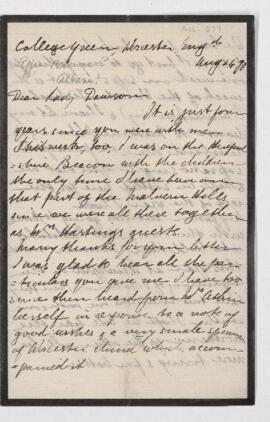 College Green, Worcester, Engd.
Aug 26. 9
Dear Lady Dawson
It is just four
years since you were with me
This week, too, I was on the
-shire Beacon with the children
the only time I have been on
that part of the Malvern Hills
since we were all there together
as Mrs Hastings guests.
Many thanks for your letter
I was glad to hear all the par-
ticulars you give me I have too
since then heard from Mrs
herself in response to a note of
good wishes & a very small specimen
of Worcester china which accom-
panied it